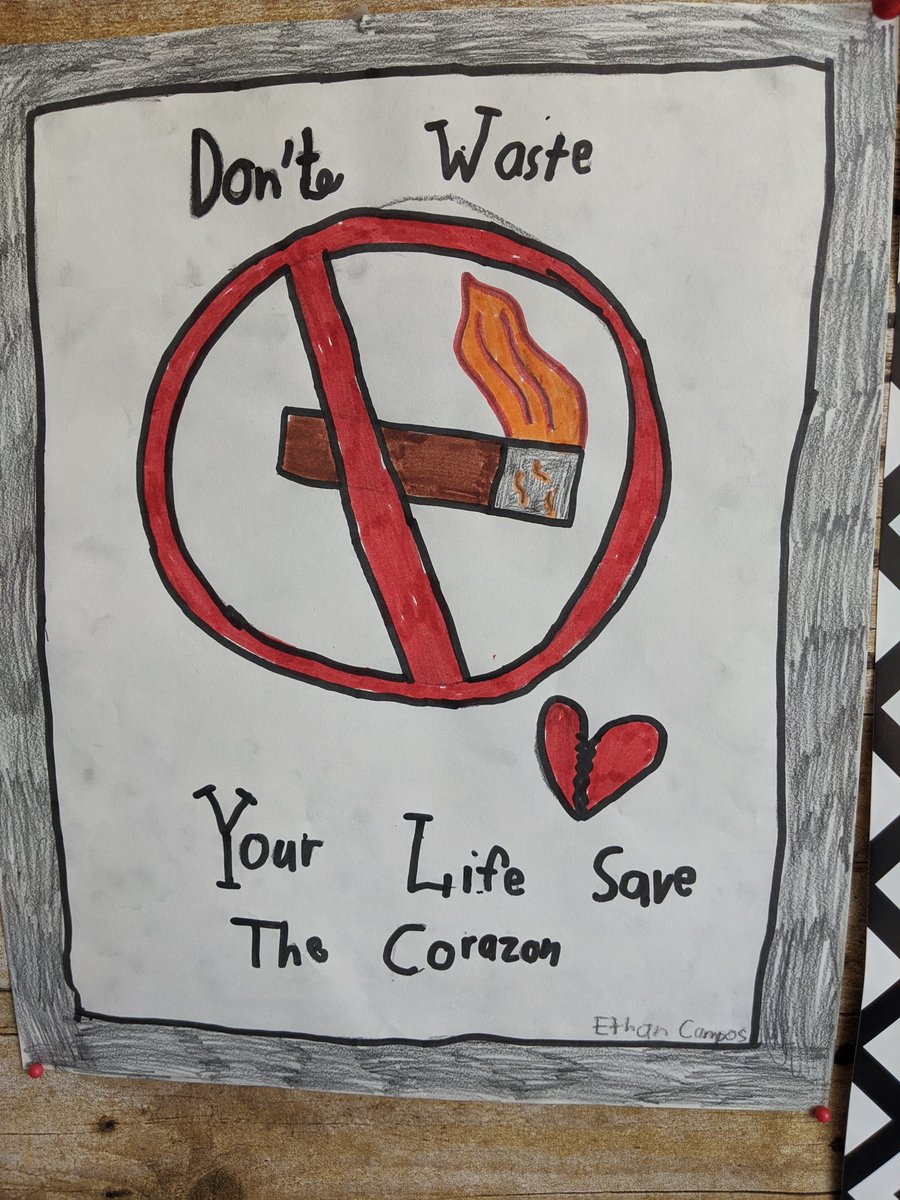 Don'te Waste
Your Life Save
The Corazon
Ethan Campos